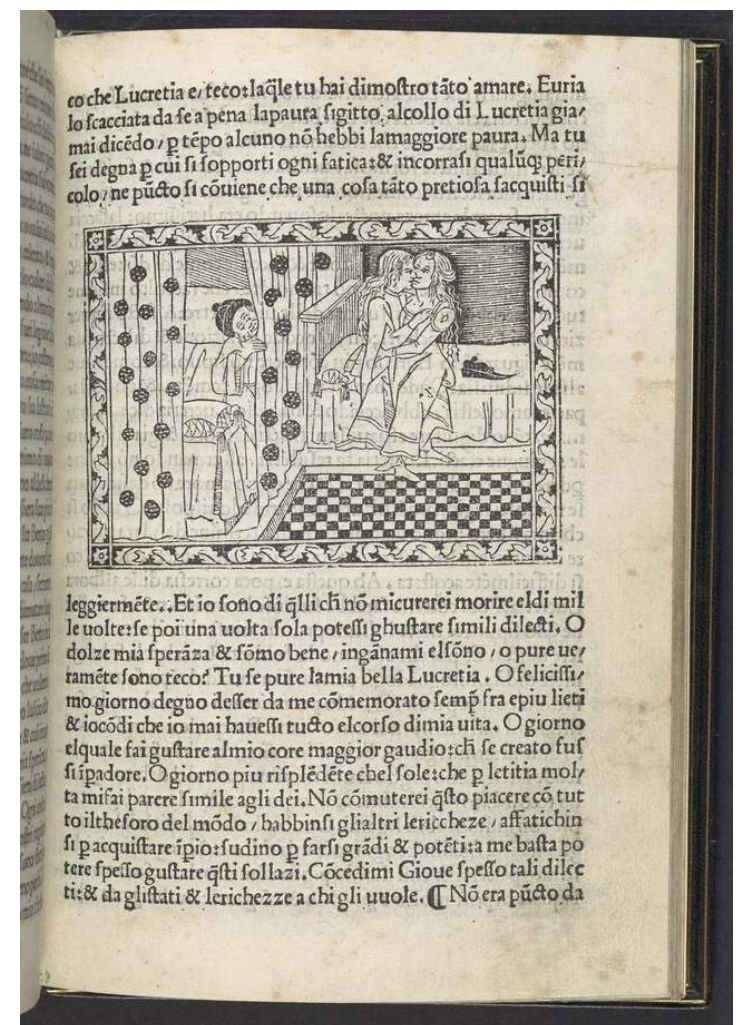 co che Lucretia e, teco:laq̃le tu hai dimoſtro tãto amare. Euria
lo ſcacciata da ſe a pena lapaura ſigitto alcollo di Lucretia gia,
mai dicẽdo, ꝑ tẽpo alcuno nõ hebbi lamaggiore paura. Ma tu
ſei degna ꝑ cui ſi ſopporti ogni fatica:& incorraſi qualũqꝫ peri,
colo, ne pũcto ſi cõuiene che una coſa tãto pretioſa ſacquiſti ſi
leggiermẽte. Et io ſono di q̃lli ch̃ nõ micurerei morire eldi mil
le uolte:ſe poi una uolta ſola poteſſi ghuſtare ſimili dilecti. O
dolze mia ſperãza & ſõmo bene, ingãnami elſõno, o pure ue,
ramẽte ſono teco? Tu ſe pure lamia bella Lucretia. O feliciſſi,
mo giorno degno deſſer da me cõmemorato ſemp̃ fra epiu lieti
& iocõdi che io mai haueſſi tucto elcorſo dimia uita. O giorno
elquale fai guſtare almio core maggior gaudio:ch̃ ſe creato fuſ
ſi ĩpadore. O giorno piu riſplẽdẽte chel ſole:che ꝑ letitia mol,
ta mifai parere ſimile agli dei. Nõ cõmuterei q̃ſto piacere cõ tut
to iltheſoro del mõdo, habbinſi glialtri lericcheze, affatichin
ſi ꝑ acquiſtare ĩpio:ſudino ꝑ farſi grãdi & potẽti:a me baſta po
tere ſpeſſo guſtare q̃ſti ſollazi. Cõcedimi Gioue ſpeſſo tali dilec
ti:& da gliſtati & lerichezze a chi gli uuole. ¶ Nõ era pũcto da